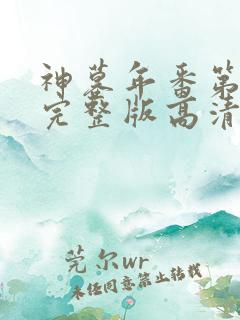 神墓年番第
完整版高清
莞尔wr
未经同意禁止转载